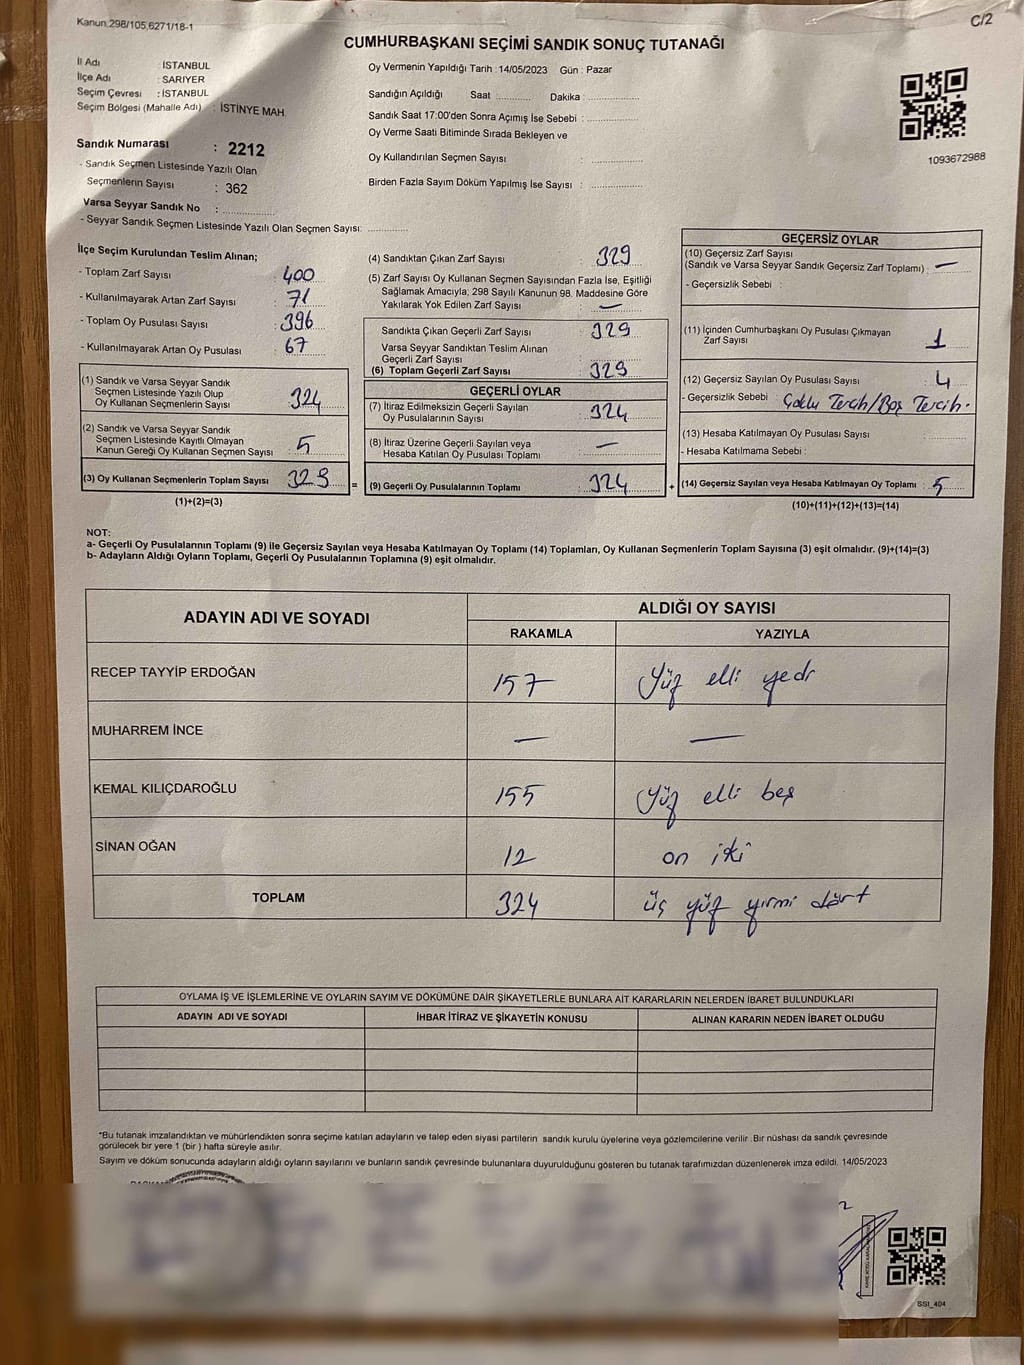 Kanun.298/105,6271/18-1
C/2
CUMHURBAŞKANI SEÇİMİ SANDIK SONUÇ TUTANAĞI
İl Adı : İSTANBUL
İlçe Adı : SARIYER
Seçim Çevresi : İSTANBUL
Seçim Bölgesi (Mahalle Adı) : İSTİNYE MAH.
Sandık Numarası : 2212
- Sandık Seçmen Listesinde Yazılı Olan
Seçmenlerin Sayısı : 362
Varsa Seyyar Sandık No : ...............
- Seyyar Sandık Seçmen Listesinde Yazılı Olan Seçmen Sayısı: ............
Oy Vermenin Yapıldığı Tarih : 14/05/2023 Gün : Pazar
Sandığın Açıldığı Saat ............ Dakika : ...............
Sandık Saat 17:00'den Sonra Açımış İse Sebebi : ...............
Oy Verme Saati Bitiminde Sırada Bekleyen ve
Oy Kullandırılan Seçmen Sayısı : ...............
Birden Fazla Sayım Döküm Yapılmış İse Sayısı : ...............
1093672988
İlçe Seçim Kurulundan Teslim Alınan;
- Toplam Zarf Sayısı : 400
- Kullanılmayarak Artan Zarf Sayısı : 71
- Toplam Oy Pusulası Sayısı : 396
- Kullanılmayarak Artan Oy Pusulası : 67
(1) Sandık ve Varsa Seyyar Sandık
Seçmen Listesinde Yazılı Olup
Oy Kullanan Seçmenlerin Sayısı : 324
(2) Sandık ve Varsa Seyyar Sandık
Seçmen Listesinde Kayıtlı Olmayan
Kanun Gereği Oy Kullanan Seçmen Sayısı : 5
(3) Oy Kullanan Seçmenlerin Toplam Sayısı : 329
(1)+(2)=(3)
=
(4) Sandıktan Çıkan Zarf Sayısı : 329
(5) Zarf Sayısı Oy Kullanan Seçmen Sayısından Fazla İse, Eşitliği
Sağlamak Amacıyla, 298 Sayılı Kanunun 98. Maddesine Göre
Yakılarak Yok Edilen Zarf Sayısı : —
Sandıkta Çıkan Geçerli Zarf Sayısı : 329
Varsa Seyyar Sandıktan Teslim Alınan
Geçerli Zarf Sayısı :
(6) Toplam Geçerli Zarf Sayısı : 329
GEÇERLİ OYLAR
(7) İtiraz Edilmeksizin Geçerli Sayılan
Oy Pusulalarının Sayısı : 324
(8) İtiraz Üzerine Geçerli Sayılan veya
Hesaba Katılan Oy Pusulası Toplamı : —
(9) Geçerli Oy Pusulalarının Toplamı : 324
+
GEÇERSİZ OYLAR
(10) Geçersiz Zarf Sayısı
(Sandık ve Varsa Seyyar Sandık Geçersiz Zarf Toplamı) : —
- Geçersizlik Sebebi :
(11) İçinden Cumhurbaşkanı Oy Pusulası Çıkmayan
Zarf Sayısı : 1
(12) Geçersiz Sayılan Oy Pusulası Sayısı : 4
- Geçersizlik Sebebi : Çoklu Tercih/Boş Tercih.
(13) Hesaba Katılmayan Oy Pusulası Sayısı :
- Hesaba Katılmama Sebebi :
(14) Geçersiz Sayılan veya Hesaba Katılmayan Oy Toplamı : 5
(10)+(11)+(12)+(13)=(14)
NOT:
a- Geçerli Oy Pusulalarının Toplamı (9) ile Geçersiz Sayılan veya Hesaba Katılmayan Oy Toplamı (14) Toplamları, Oy Kullanan Seçmenlerin Toplam Sayısına (3) eşit olmalıdır. (9)+(14)=(3)
b- Adayların Aldığı Oyların Toplamı, Geçerli Oy Pusulalarının Toplamına (9) eşit olmalıdır.
ADAYIN ADI VE SOYADI ALDIĞI OY SAYISI
RAKAMLA YAZIYLA
RECEP TAYYİP ERDOĞAN 157 Yüz elli yedi
MUHARREM İNCE — —
KEMAL KILIÇDAROĞLU 155 Yüz elli beş
SİNAN OĞAN 12 on iki
TOPLAM 324 üç yüz yirmi dört
OYLAMA İŞ VE İŞLEMLERİNE VE OYLARIN SAYIM VE DÖKÜMÜNE DAİR ŞİKAYETLERLE BUNLARA AİT KARARLARIN NELERDEN İBARET BULUNDUKLARI
ADAYIN ADI VE SOYADI İHBAR İTİRAZ VE ŞİKAYETİN KONUSU ALINAN KARARIN NEDEN İBARET OLDUĞU
*Bu tutanak imzalandıktan ve mühürlendikten sonra seçime katılan adayların ve talep eden siyasi partilerin sandık kurulu üyelerine veya gözlemcilerine verilir. Bir nüshası da sandık çevresinde
görülecek bir yere 1 (bir ) hafta süreyle asılır.
Sayım ve döküm sonucunda adayların aldığı oyların sayılarını ve bunların sandık çevresinde bulunanlara duyurulduğunu gösteren bu tutanak tarafımızdan düzenlenerek imza edildi. 14/05/2023
SSI_404